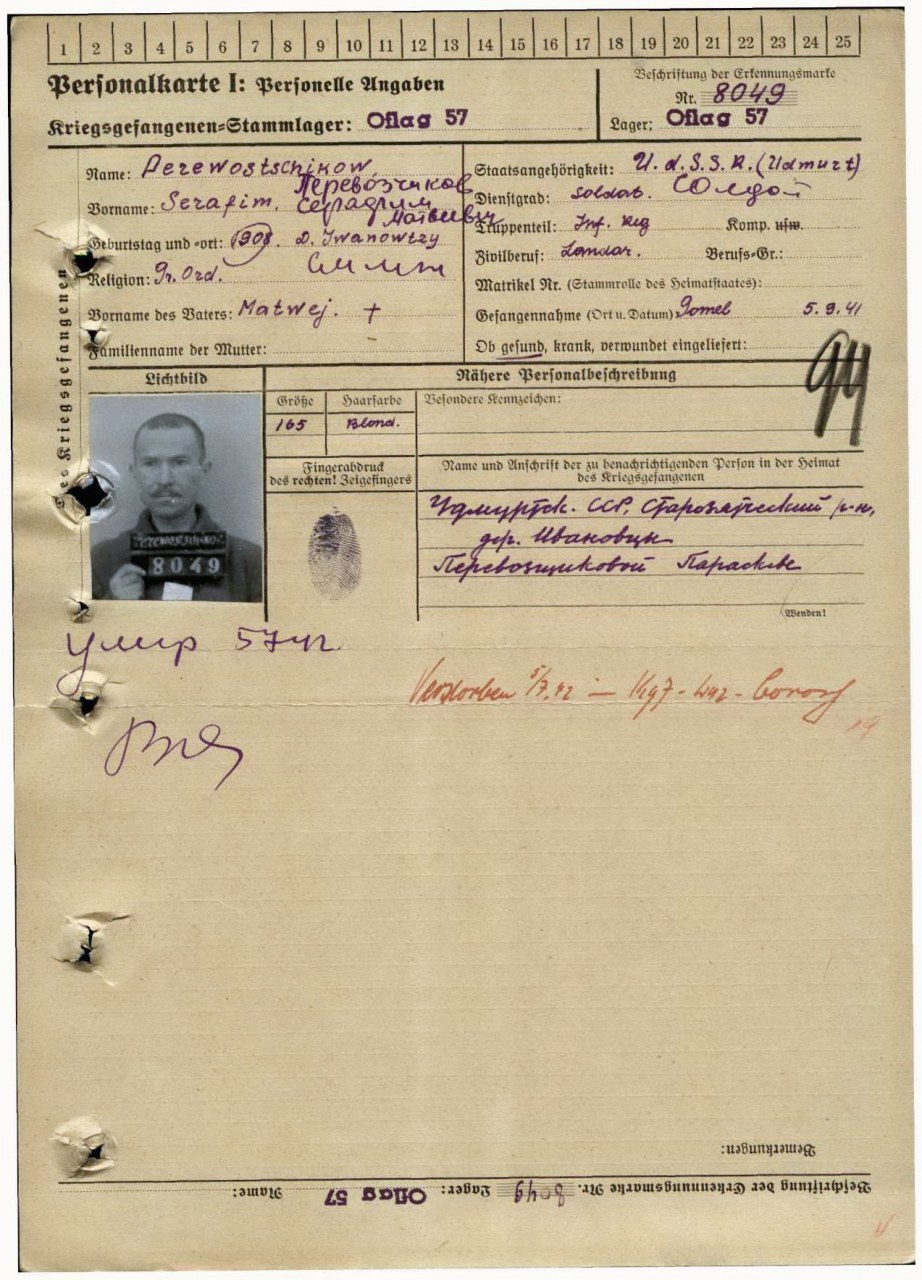 1 2 3 4 5 6 7 8 9 10 11 12 13 14 15 16 17 18 19 20 21 22 23 24 25
Personalkarte I: Personelle Angaben
Kriegsgefangenen=Stammlager: Oflag 57
Beschriftung der Erkennungsmarke
Nr. 8049
Lager: Oflag 57
Des Kriegsgefangenen
Name: Perewostschikow
Перевозчиков
Vorname: Serafim. Серафим
Матвевич
Geburtstag und =ort: 1908. D. Iwanowtzy
Religion: Gr. Ord.
Vorname des Vaters: Matwej. +
Familienname der Mutter:
Staatsangehörigkeit: U.d.S.S.R. (Udmurt)
Dienstgrad: Soldat.
Truppenteil: Inf. Reg Komp. usw.
Zivilberuf: Landar. Berufs=Gr.:
Matrikel Nr. (Stammrolle des Heimatstaates):
Gefangennahme (Ort u. Datum): Gomel 5.9.41
Ob gesund, krank, verwundet eingeliefert:
Lichtbild
Nähere Personalbeschreibung
Größe Haarfarbe Besondere Kennzeichen:
165 Blond.
Fingerabdruck
des rechten! Zeigefingers
Name und Anschrift der zu benachrichtigenden Person in der Heimat
des Kriegsgefangenen
Удмуртск. ССР, Старозятцский р-н,
дер. Ивановцы
Перевозщиковой Параскеве
Wenden!
8049
умир
Verstorben 5/7.42
Bemerkungen:
Beschriftung der Erkennungsmarke Nr. 8049 Lager: Oflag 57 Name: